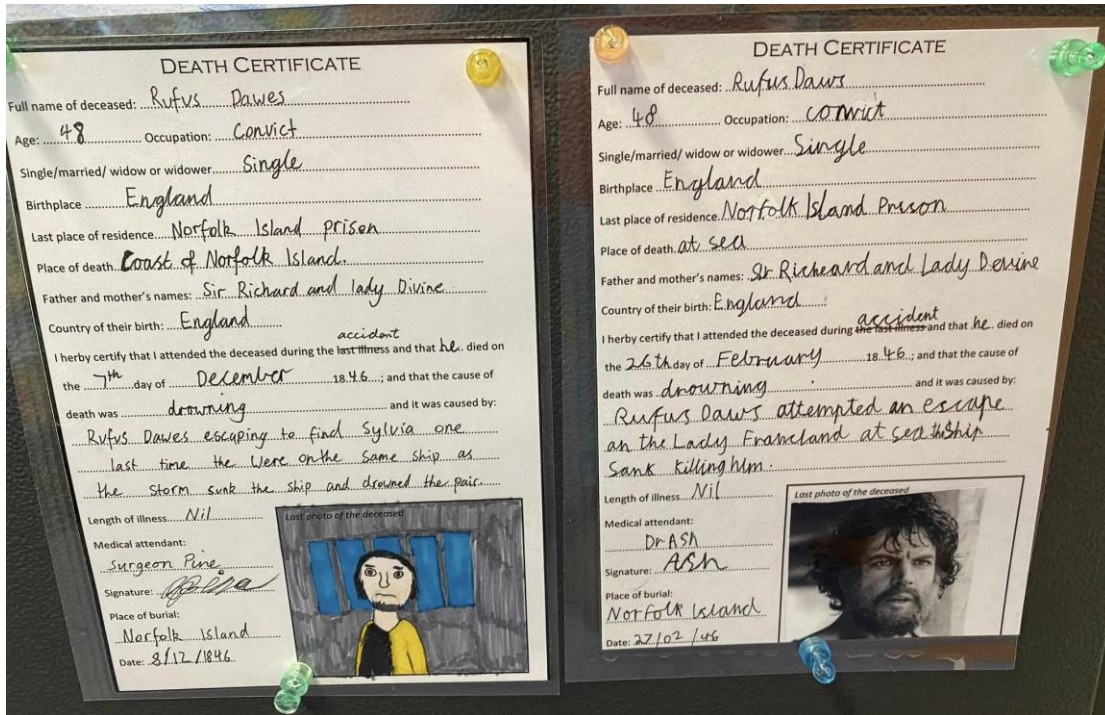 DEATH CERTIFICATE
Full name of deceased: Rufus Dawes
Age: 48 Occupation: Convict
Single/married/ widow or widower Single
Birthplace England
Last place of residence Norfolk Island prison
Place of death Coast of Norfolk Island.
Father and mother's names: Sir Richard and lady Divine
Country of their birth: England
accident
I herby certify that I attended the deceased during the last illness and that he died on
the 7th day of December 1846; and that the cause of
death was drowning and it was caused by:
Rufus Dawes escaping to find Sylvia one
last time the were on the same ship as
the storm sunk the ship and drowned the pair.
Length of illness Nil
Medical attendant:
Surgeon Pine
Signature:
Place of burial:
Norfolk Island
Date: 8/12/1846
Last photo of the deceased
DEATH CERTIFICATE
Full name of deceased: Rufus Daws
Age: 48 Occupation: convict
Single/married/ widow or widower Single
Birthplace England
Last place of residence Norfolk Island Prison
Place of death at sea
Father and mother's names: Sir Richeard and Lady Devine
Country of their birth: England
accident
I herby certify that I attended the deceased during the last illness and that he died on
the 26th day of February 1846; and that the cause of
death was drowning and it was caused by:
Rufus Daws attempted an escape
an the Lady Francland at sea the ship
sank killing him.
Length of illness Nil
Medical attendant:
Dr ASh
Signature: ASh
Place of burial:
Norfolk Island
Date: 27/02/46
Last photo of the deceased